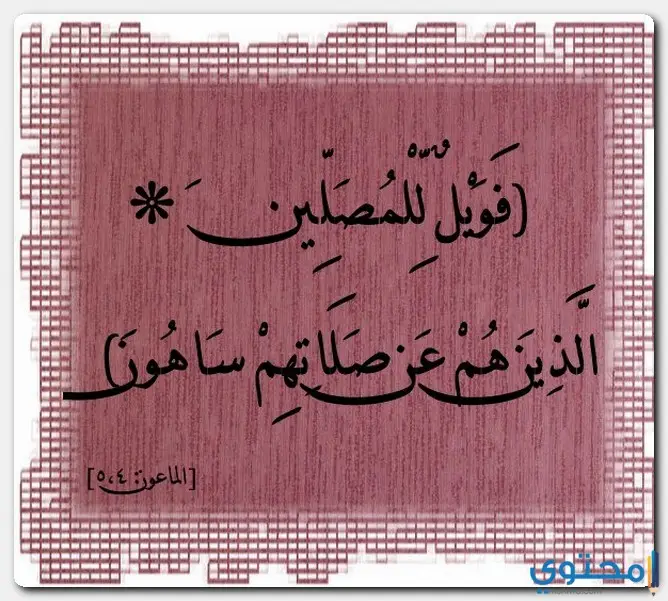 (فَوَيْلٌ لِّلْمُصَلِّينَ *
الَّذِينَ هُمْ عَن صَلَاتِهِمْ سَاهُونَ)
[الماعون: ٤، ٥]
محتوي